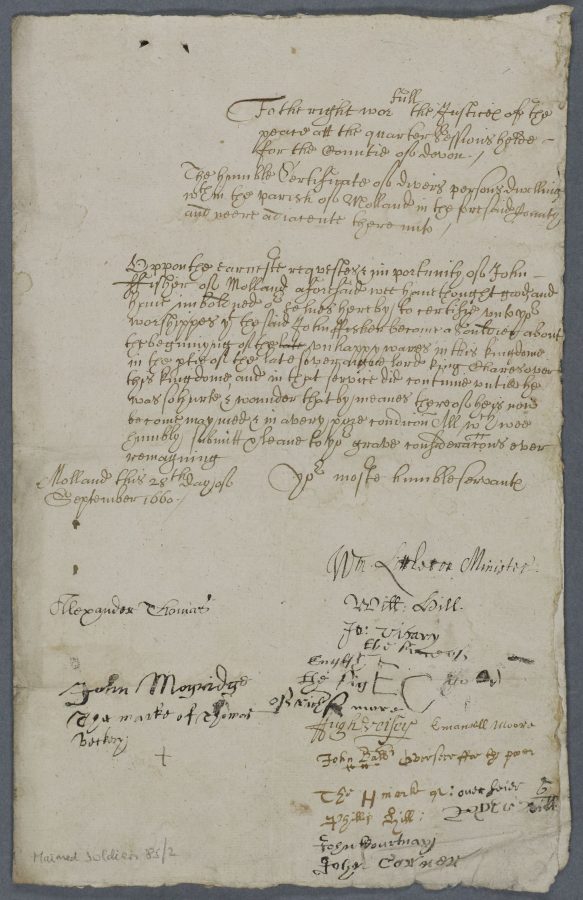 To the right wor full the Justices of the
peace att the quarter Sessions helde
for the Countie of Devon./
The humble Certificate of divers persons dwelling
wth in the parish of Molland in the County
and neere adiacente there unto /
Uppon the earneste requeste & importunity of John
ffisher of Molland aforsaid wee have thought good and
hereby to certifie unto yor
worshippes yt the said John ffisher became a Souldier about
the beginning of the late unhappy warrs in this kingdome
in the of the late lord king Charles over
this kingdome, and in that service did continue untill he
was so hurte & wounded that by meanes thereof he is now
become maymed & in a very pore condicon All wch wee
humbly submitt & leave to yor grave consideratons ever
remayning
Molland this 28th day of
September 1660./
Yor moste humble servants
Wm Minister
Alexander Thomas
Will: Hill.
Jo:
the
the sign E C
John Mogridge
The marke of Thomas
more
Emanuell Moore
John Overseer the poor
The H marke of: overseer
Phillip Hill:
John Courtnay
John Corner
Maimed Soldiers 85/2